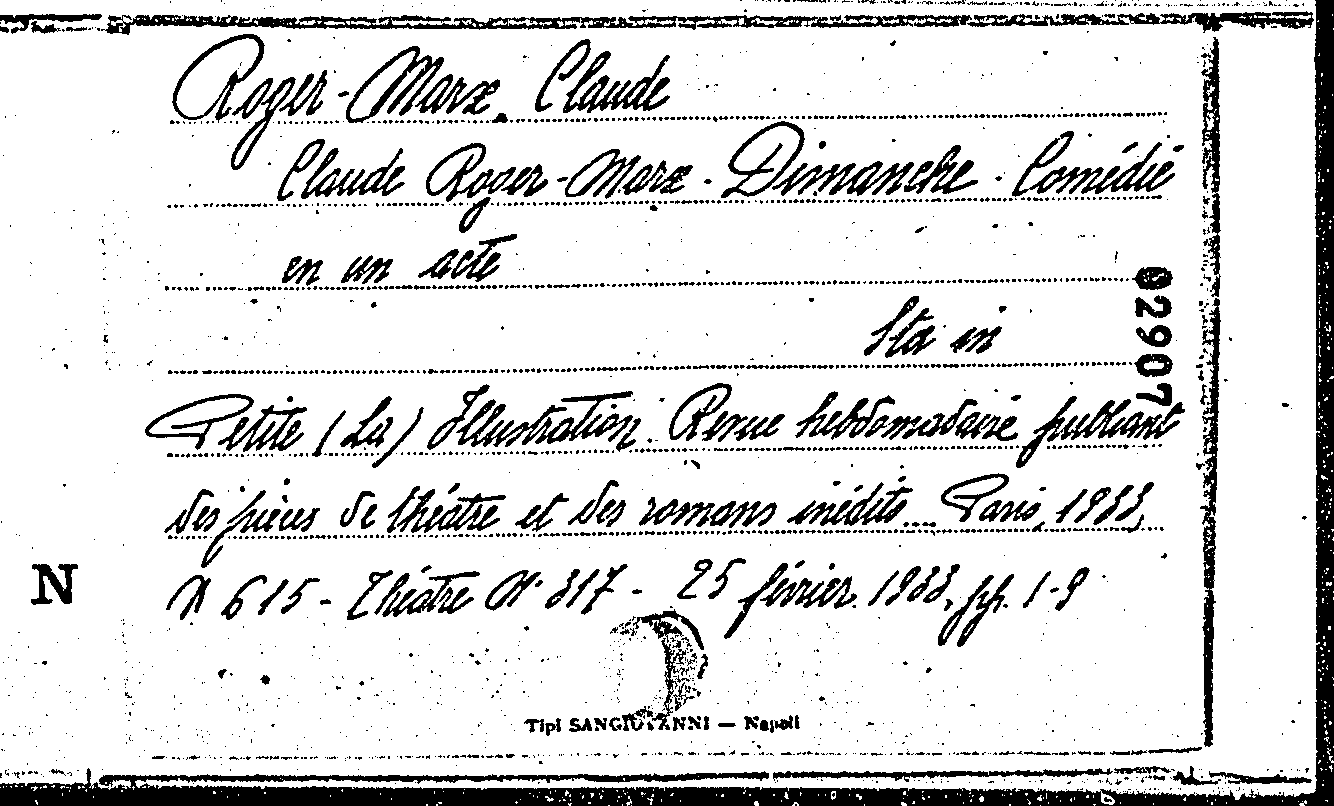 Roger-Marx, Claude
Claude Roger-Marx. Dimanche. Comédie
en un acte
Sta in
02907
Petite (La) Illustration. Revue hebdomadaire publiant
des pièces de théâtre et des romans inédits... Paris, 1933,
N 615 - Théâtre N° 317 - 25 février 1933, pp. 1-9
N
Tipi SANGIOVANNI — Napoli